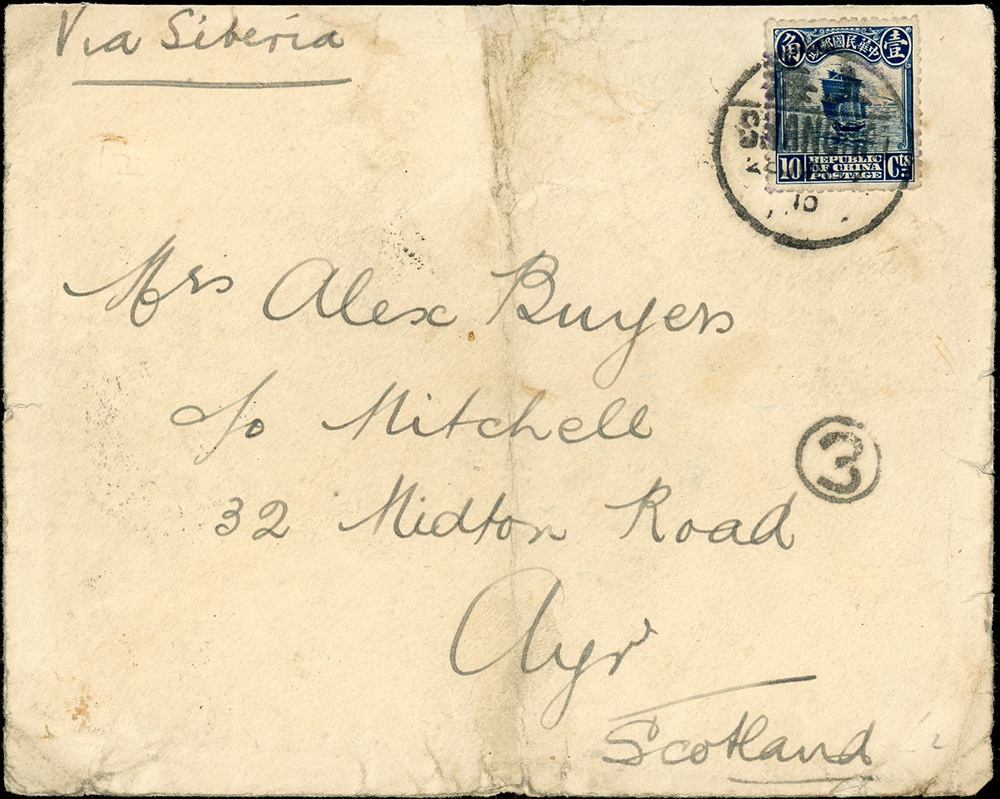 Via Siberia
角 中華民國郵政 壹
SHANGHAI
10 REPUBLIC OF CHINA POSTAGE Cts
10
Mrs Alex Buyers
c/o Mitchell
3
32 Midton Road
Ayr
Scotland